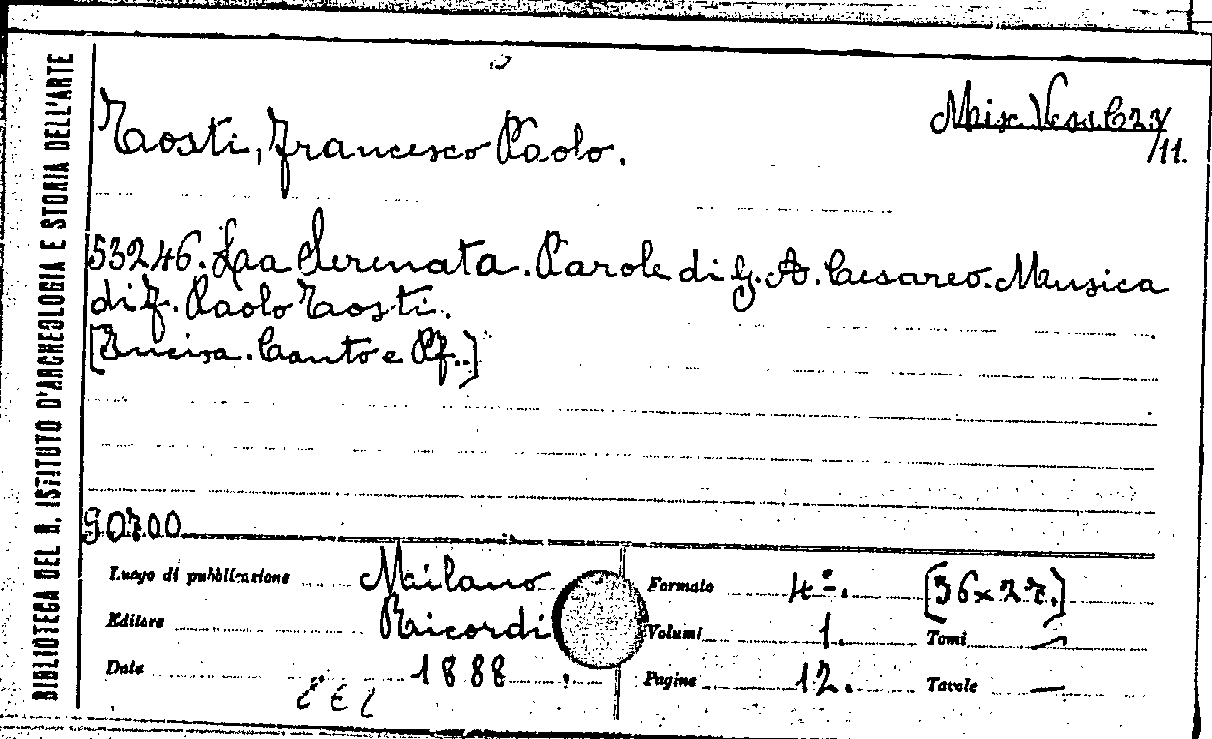 BIBLIOTECA DEL R. ISTITUTO D'ARCHEOLOGIA E STORIA DELL'ARTE
Misc. Vess. C23/11.
Tosti, Francesco Paolo.
53246. La Serenata. Parole di G. A. Cesareo. Musica
di F. Paolo Tosti.
[Incisa. Canto e Pf..]
90700
Luogo di pubblicazione Milano
Editore Ricordi
Data 1888
Formato 4º. [36x27.]
Volumi 1. Tomi —
Pagine 12. Tavole —